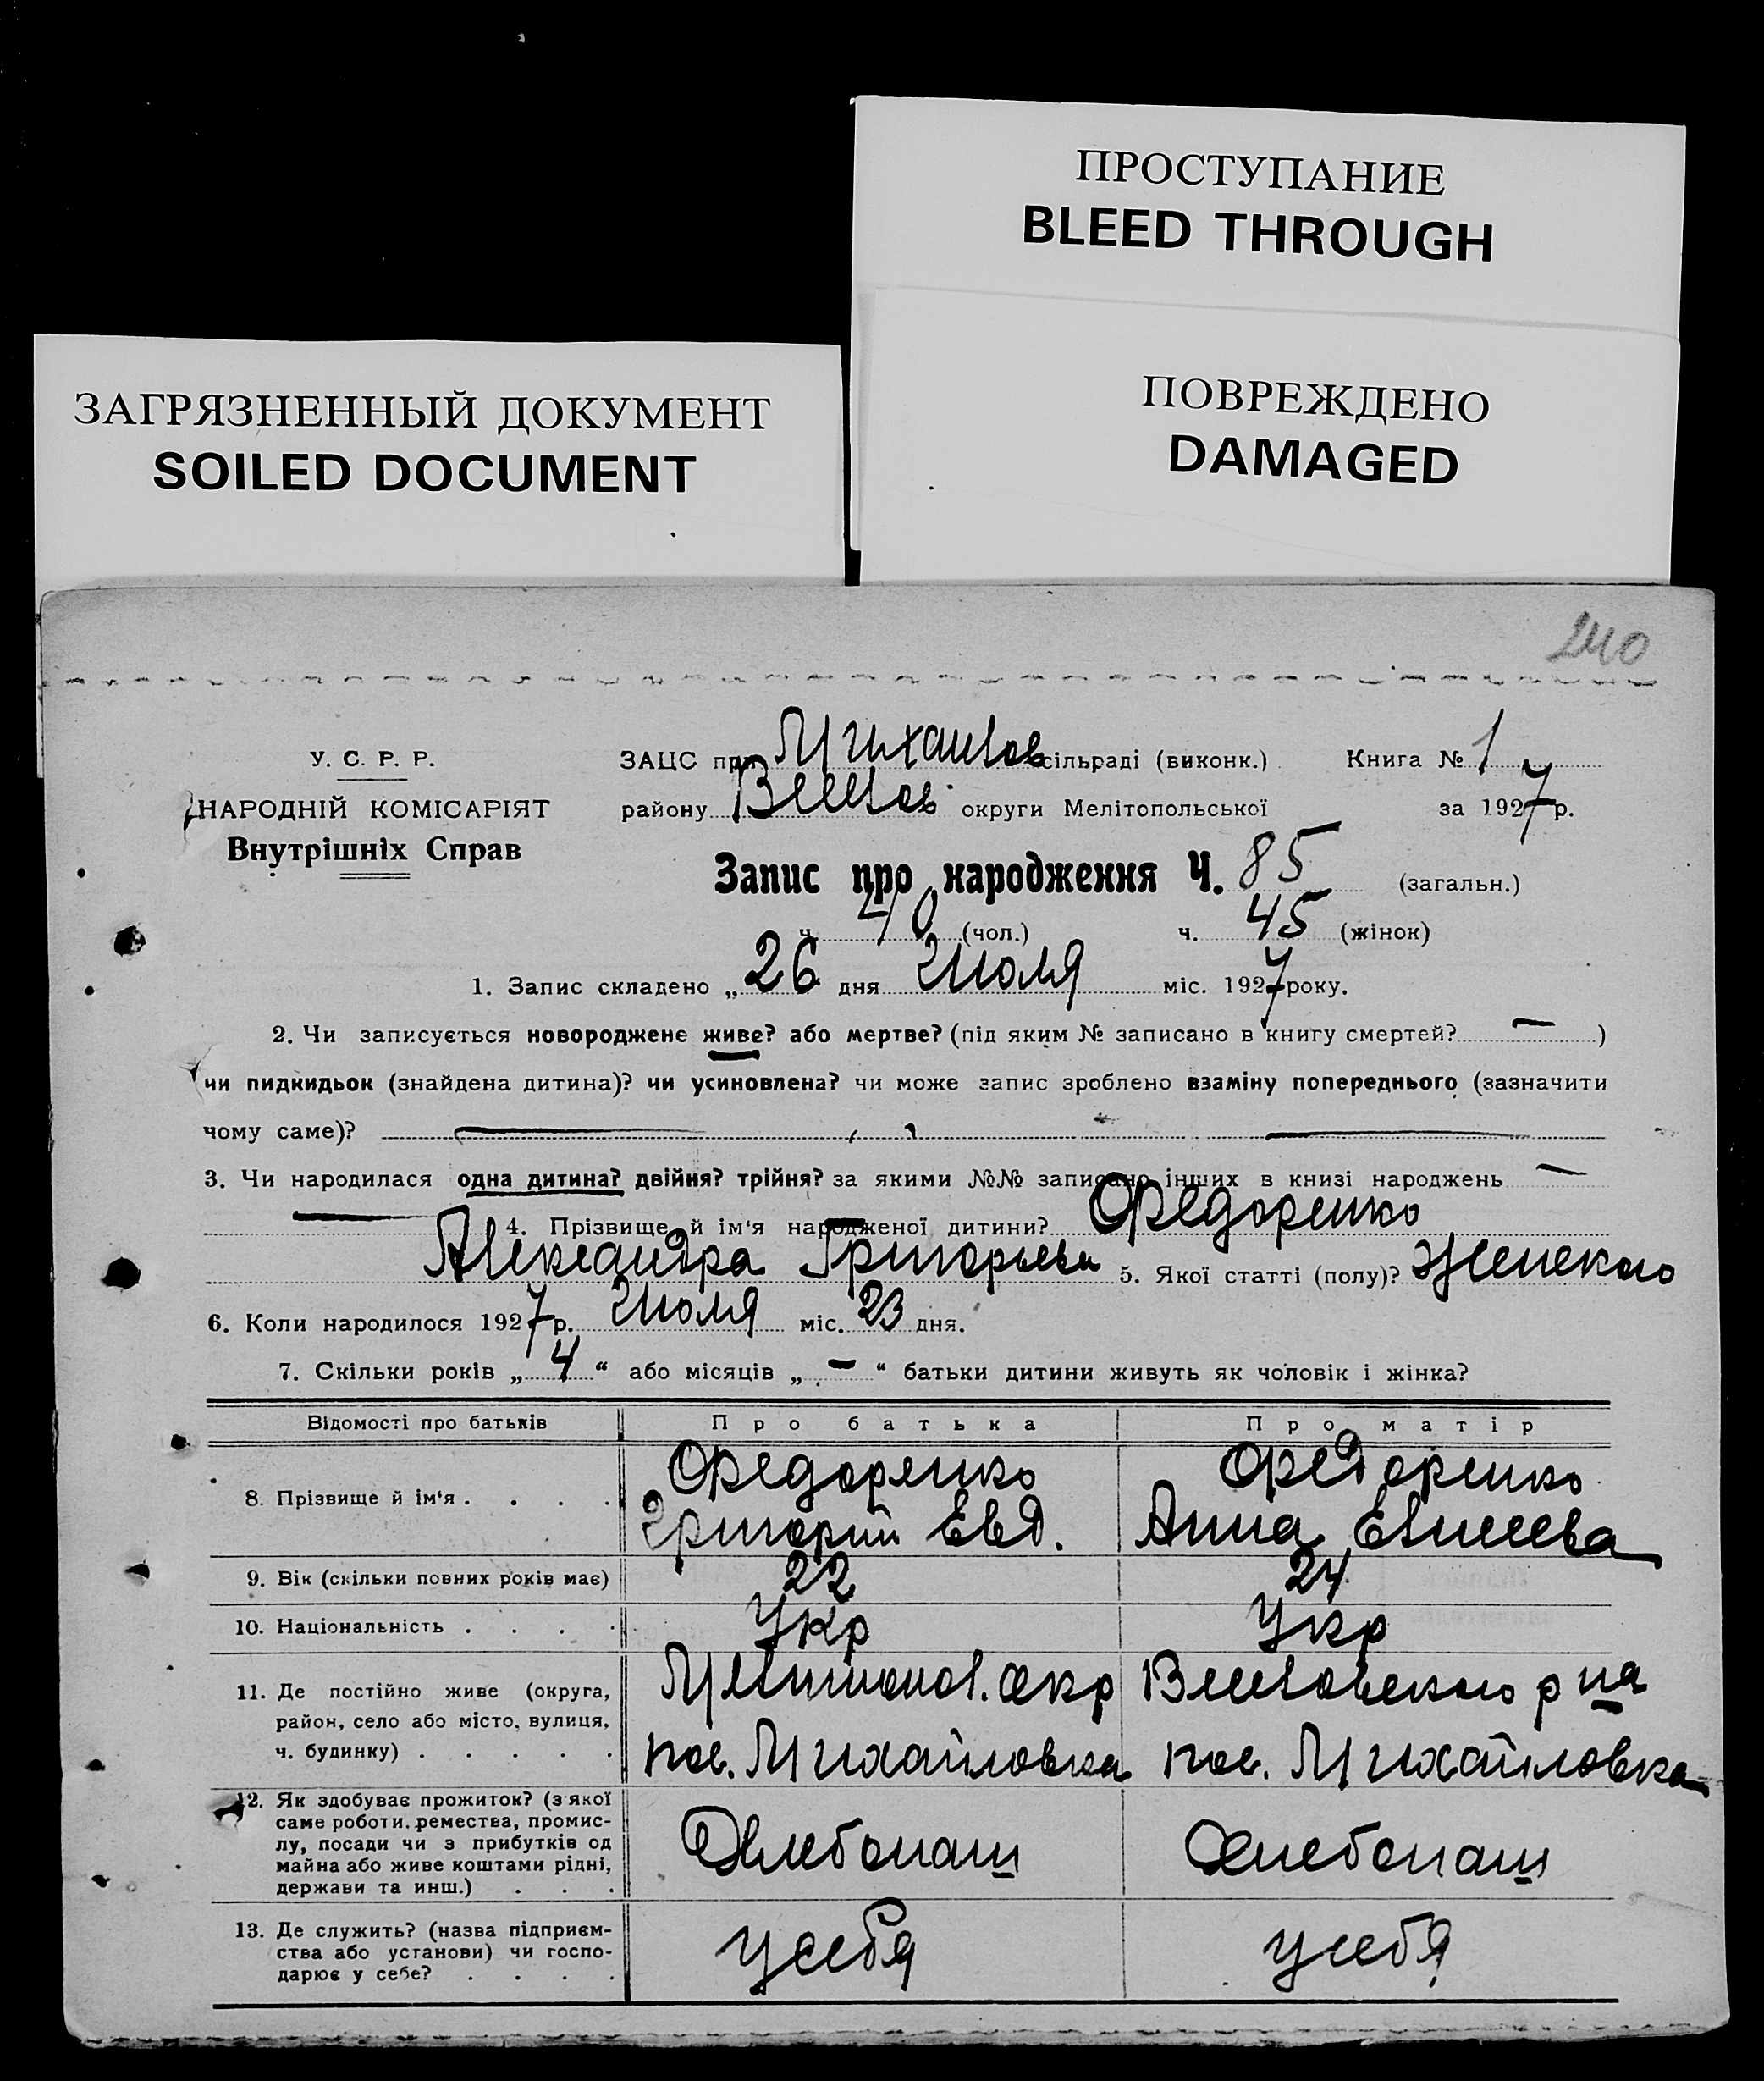 ПРОСТУПАНИЕ
BLEED THROUGH
ПОВРЕЖДЕНО
DAMAGED
ЗАГРЯЗНЕННЫЙ ДОКУМЕНТ
SOILED DOCUMENT
240
У. С. Р. Р.
НАРОДНІЙ КОМІСАРІЯТ
Внутрішніх Справ
ЗАЦС при Михайлов сільраді (виконк.) Книга № 1
району Веселов. округи Мелітопольської за 1927 р.
Запис про народження Ч. 85 (загальн.)
ч. 40 (чол.) ч. 45 (жінок)
1. Запис складено „ 26 дня Июля міс. 1927 року.
2. Чи записується новороджене живе? або мертве? (під яким № записано в книгу смертей? — )
чи пидкидьок (знайдена дитина)? чи усиновлена? чи може запис зроблено взаміну попереднього (зазначити
чому саме)? —
3. Чи народилася одна дитина? двійня? трійня? за якими №№ записано інших в книзі народжень —
4. Прізвище й ім'я народженої дитини? Федоренко
Александра Григорьевн 5. Якої статті (полу)? Женского
6. Коли народилося 1927 р. Июля міс. 23 дня.
7. Скільки років „ 4 “ або місяців „ — “ батьки дитини живуть як чоловік і жінка?
Відомості про батьків Про батька Про матір
8. Прізвище й ім'я . . . . Федоренко Григорий Евд. Федоренко Анна Елисеева
9. Вік (скільки повних років має) 22 24
10. Національність . . . . Укр Укр
11. Де постійно живе (округа, Мелитопол. окр Веселовского р на
район, село або місто, вулиця,
ч. будинку) . . . . . пос. Михайловка пос. Михайловка
12. Як здобуває прожиток? (з якої
саме роботи, ремества, промис-
лу, посади чи з прибутків од Хлебопаш Хлебопаш
майна або живе коштами рідні,
держави та инш.) . . .
13. Де служить? (назва підприєм-
ства або установи) чи госпо- у себя у себя
дарює у себе? . . . .